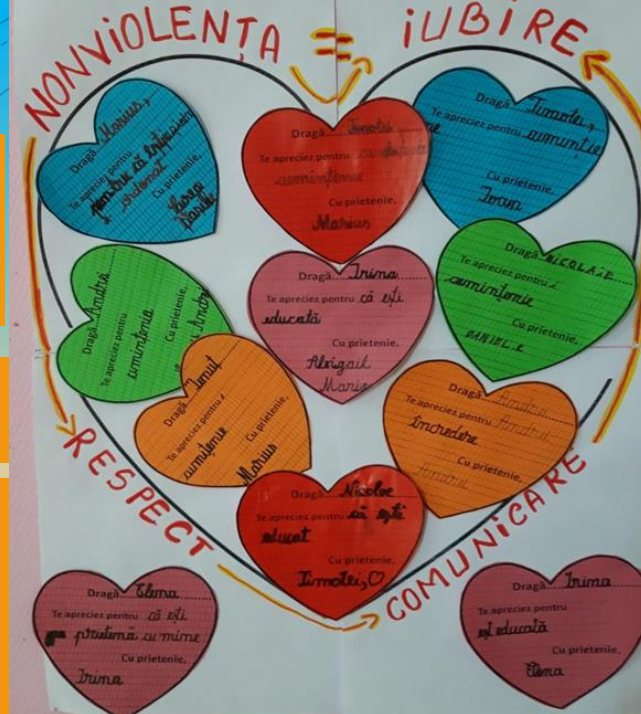 NONVIOLENȚA = IUBIRE
Dragă Marius,
Te apreciez pentru
pentru că ești
ordonat
Cu prietenie,
Dragă Timotei,
Te apreciez pentru
cumințenie
Cu prietenie,
Marius
Dragă Timotei,
Te apreciez pentru
Cu prietenie,
Ioan
Dragă Andrei
Te apreciez pentru
cumințenia
Cu prietenie,
Andrei
Dragă Irina
Te apreciez pentru că ești
educată
Cu prietenie,
Abigail
Maria
Dragă NICOLAIE
Te apreciez pentru
cumințenie
Cu prietenie,
DANIEL.E
Dragă Ionuț
Te apreciez pentru
cumițenie
Cu prietenie,
Marius
Dragă
Te apreciez pentru
încredere
Cu prietenie,
Andrei
Dragă Nicolae
Te apreciez pentru că ești
educat
Cu prietenie,
Timotei,
RESPECT
COMUNICARE
Dragă Elena
Te apreciez pentru că ești
prietenă cu mine
Cu prietenie,
Irina
Dragă Irina
Te apreciez pentru
eșt educată
Cu prietenie,
Elena